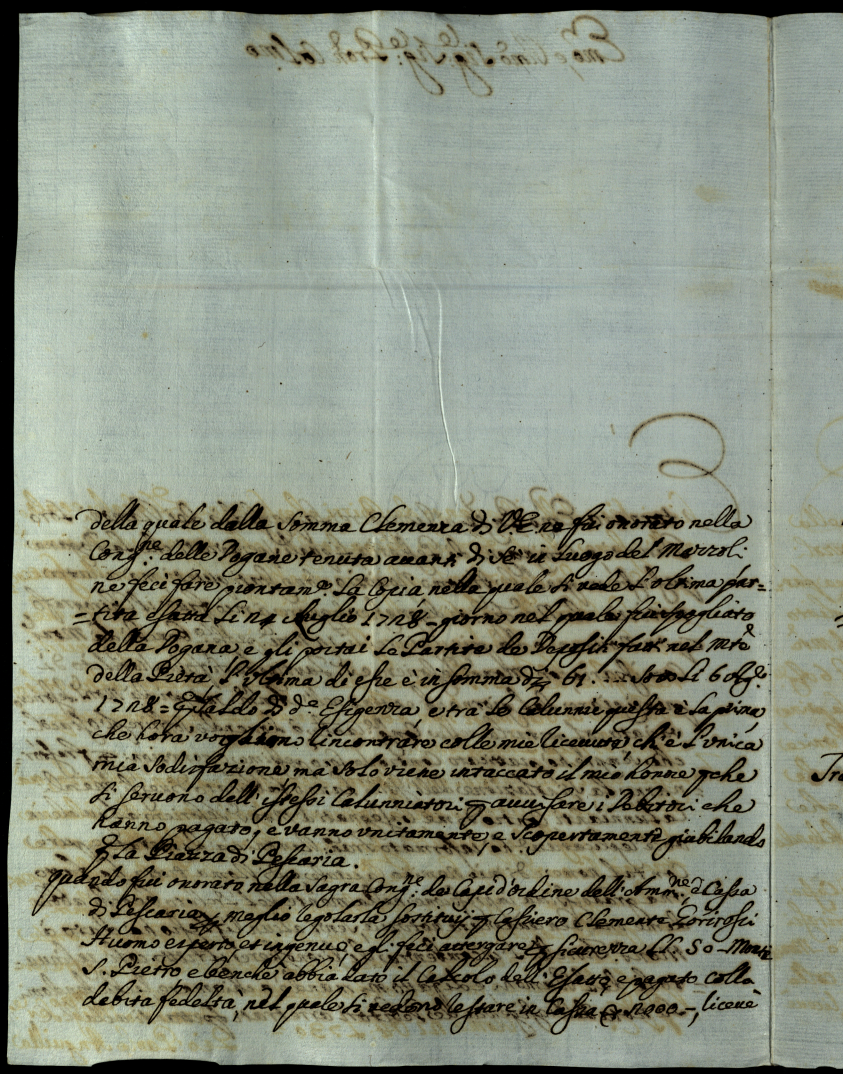 della quale dalla Somma Clemenza di V. E. ne fui onorato nella
Cong.ne delle Dogane tenuta avanti di Se in Luogo del Mazzoli:
ne feci fare prontam.e La Copia nella quale si vede L'oltima par=
=tita esatta Li 24 Luglio 1728 – giorno nel quale fui spogliato
della Dogana e gli portai Le Partite de Depositi fatti nel Mte
della Pietà L'ultima di esse è in somma di 61: Li 6 Ag.o
1728 = Saldo di d.a Esigenza, e trà Le Calunnie questa è La prima
che hora vogliono incontrare colle mie ricevute, ch'è L'unica
mia Sodisfazione ma Solo viene intaccato il mio honore che
si servono dell'istessi Calunniatori avvisare i Debitori che
hanno pagato, e vanno unitamente, e Scopertamente giubilando
La Piazza di Pescaria.
quando fui onorato nella Sagra Cong.ne de Capi d'ordine dell'Amm.ne d Cassa
di Pescaria meglio regolarla sostituij Cassiero Clemente
Huomo esperto, et ingenuo, e gli feci attergare sicurezza LL. 50 – Monti
S. Pietro e benche abbia dato il Calcolo dell'Esatto e pagato colla
debita fedeltà, nel quale si vedono restare in Cassa 2000 –, riceve